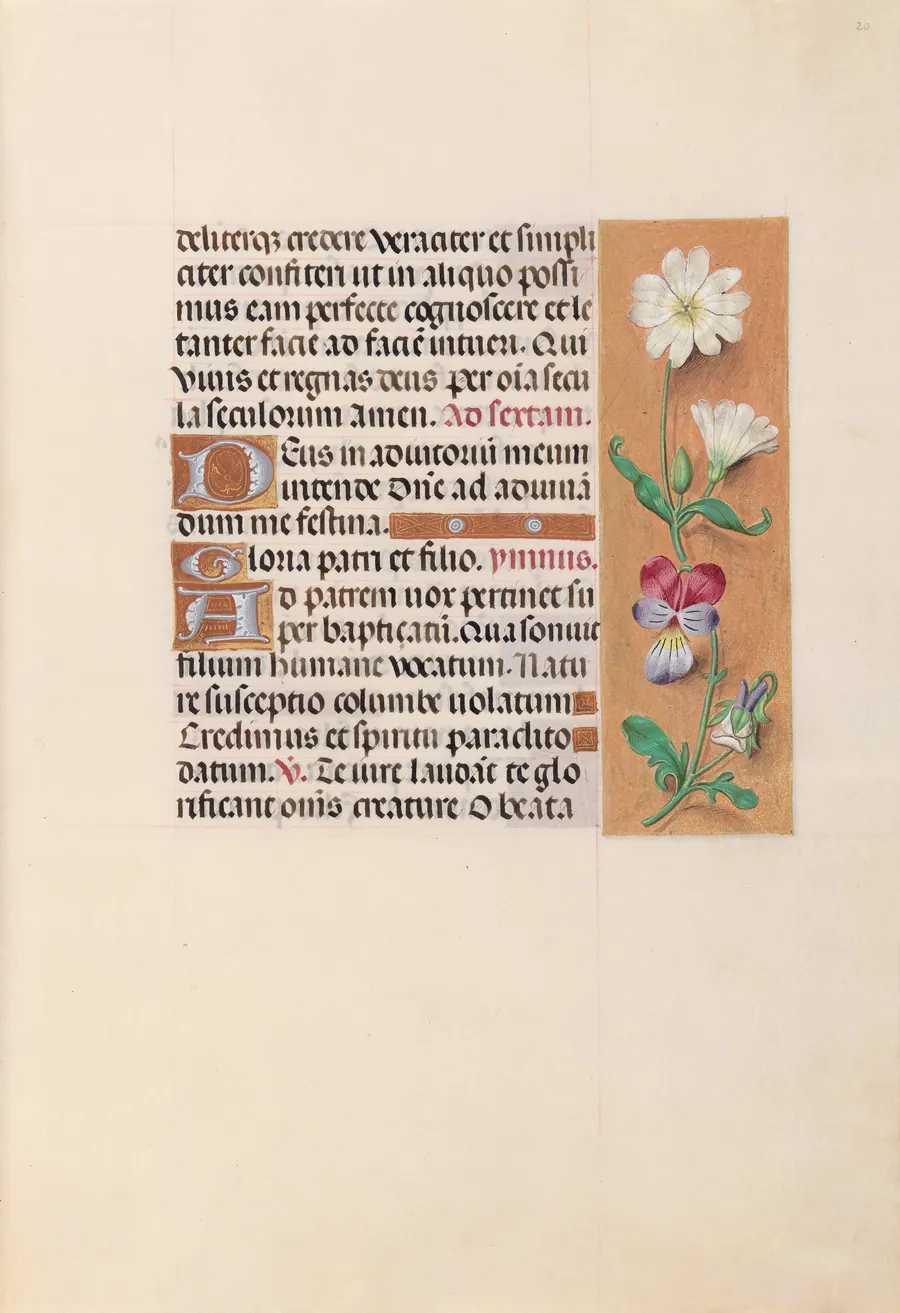 20
deliterqȝ credere veraciter et simpli
citer confiteri ut in aliquo possi
mus eam perfecte cognoscere et le
tanter facie ad faciē intueri. Qui
vivis et regnas deus per oīa secu
la seculorum Amen. Ad sextam.
Deus in adiutoriū meum
intende Dn̄e ad adiuuā
dum me festina.
Gloria patri et filio. ymnus.
Ad patrem uox pertinet su
per baptiçati. Qua sonuit
filium humane vocatum. Natu
re susceptio columbe uolatum
Credimus et spiritu paraclito
datum. V. Te iure laudāt te glo
rificant om̄s creature O beata